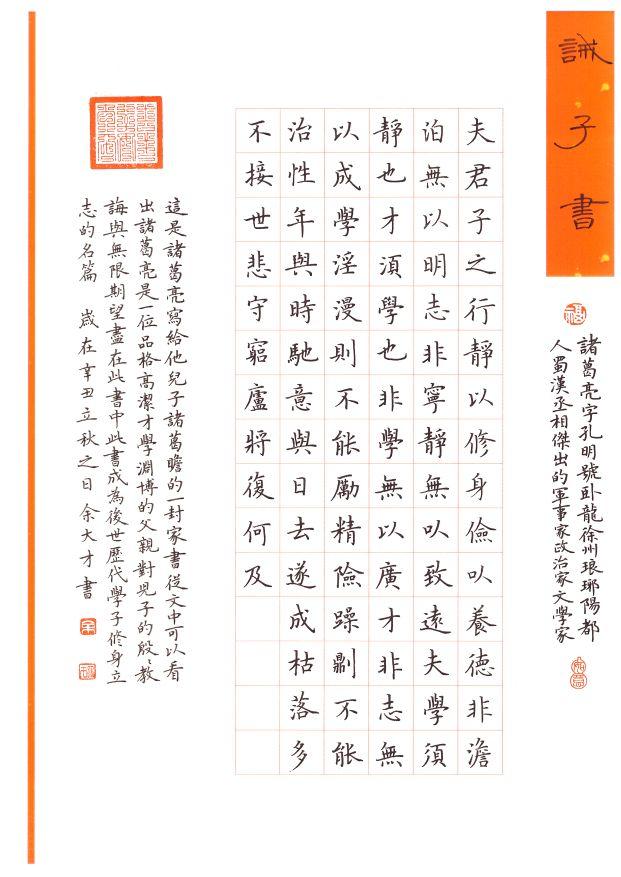 誡子書
諸葛亮字孔明號臥龍徐州琅琊陽都
人蜀漢丞相傑出的軍事家政治家文學家
夫君子之行靜以修身儉以養德非澹
泊無以明志非寧靜無以致遠夫學須
靜也才須學也非學無以廣才非志無
以成學淫漫則不能勵精險躁剻不能
治性年與時馳意與日去遂成枯落多
不接世悲守窮廬將復何及
這是諸葛亮寫給他兒子諸葛瞻的一封家書從文中可以看
出諸葛亮是一位品格高潔才學淵博的父親對兒子的殷殷教
誨與無限期望盡在此書中此書成為後世歷代學子修身立
志的名篇 歲在辛丑立秋之日余大才書